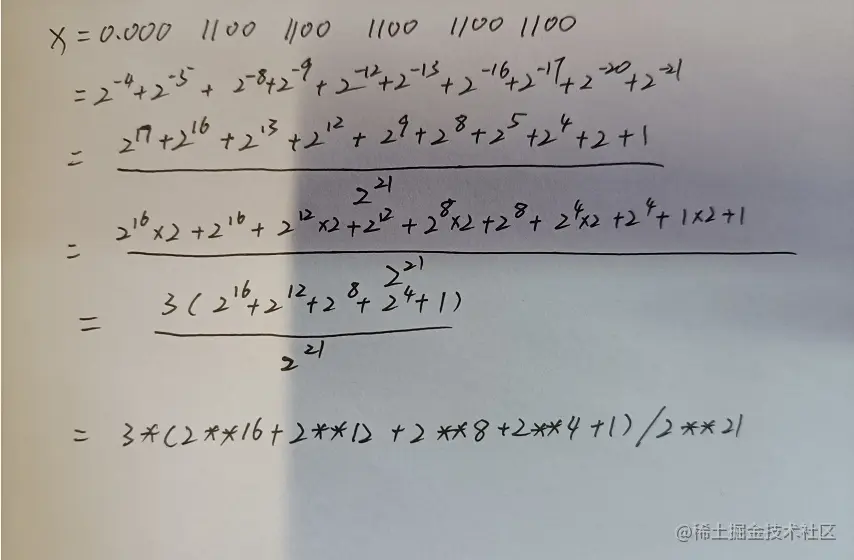 X = 0.000 1100 1100 1100 1100 1100
= 2^-4 + 2^-5 + 2^-8 + 2^-9 + 2^-12 + 2^-13 + 2^-16 + 2^-17 + 2^-20 + 2^-21
= 2^17 + 2^16 + 2^13 + 2^12 + 2^9 + 2^8 + 2^5 + 2^4 + 2 + 1
2^21
= 2^16 × 2 + 2^16 + 2^12 × 2 + 2^12 + 2^8 × 2 + 2^8 + 2^4 × 2 + 2^4 + 1 × 2 + 1
2^21
= 3 ( 2^16 + 2^12 + 2^8 + 2^4 + 1 )
2^21
= 3*(2**16 + 2**12 + 2**8 + 2**4 + 1) / 2**21
@稀土掘金技术社区